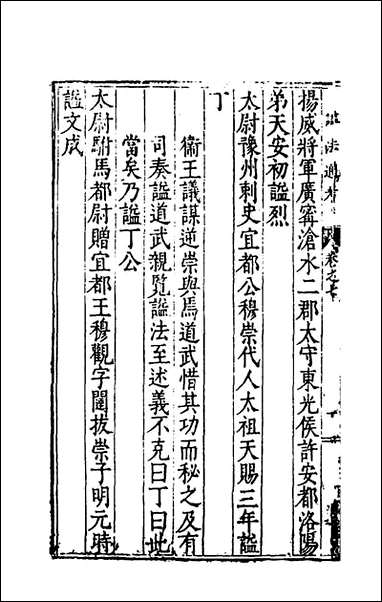 諡法通考
卷之七
揚威將軍廣寗滄水二郡太守東光侯許安都洛陽
弟天安初諡烈
太尉豫州刺史宜都公穆崇代人太祖天賜三年諡
丁
衞王議謀逆崇與焉道武惜其功而秘之及有
司奏諡道武親覧諡法至述義不克曰丁曰此
當矣乃諡丁公
太尉駙馬都尉贈宜都王穆觀字闥拔崇子明元時
諡文成